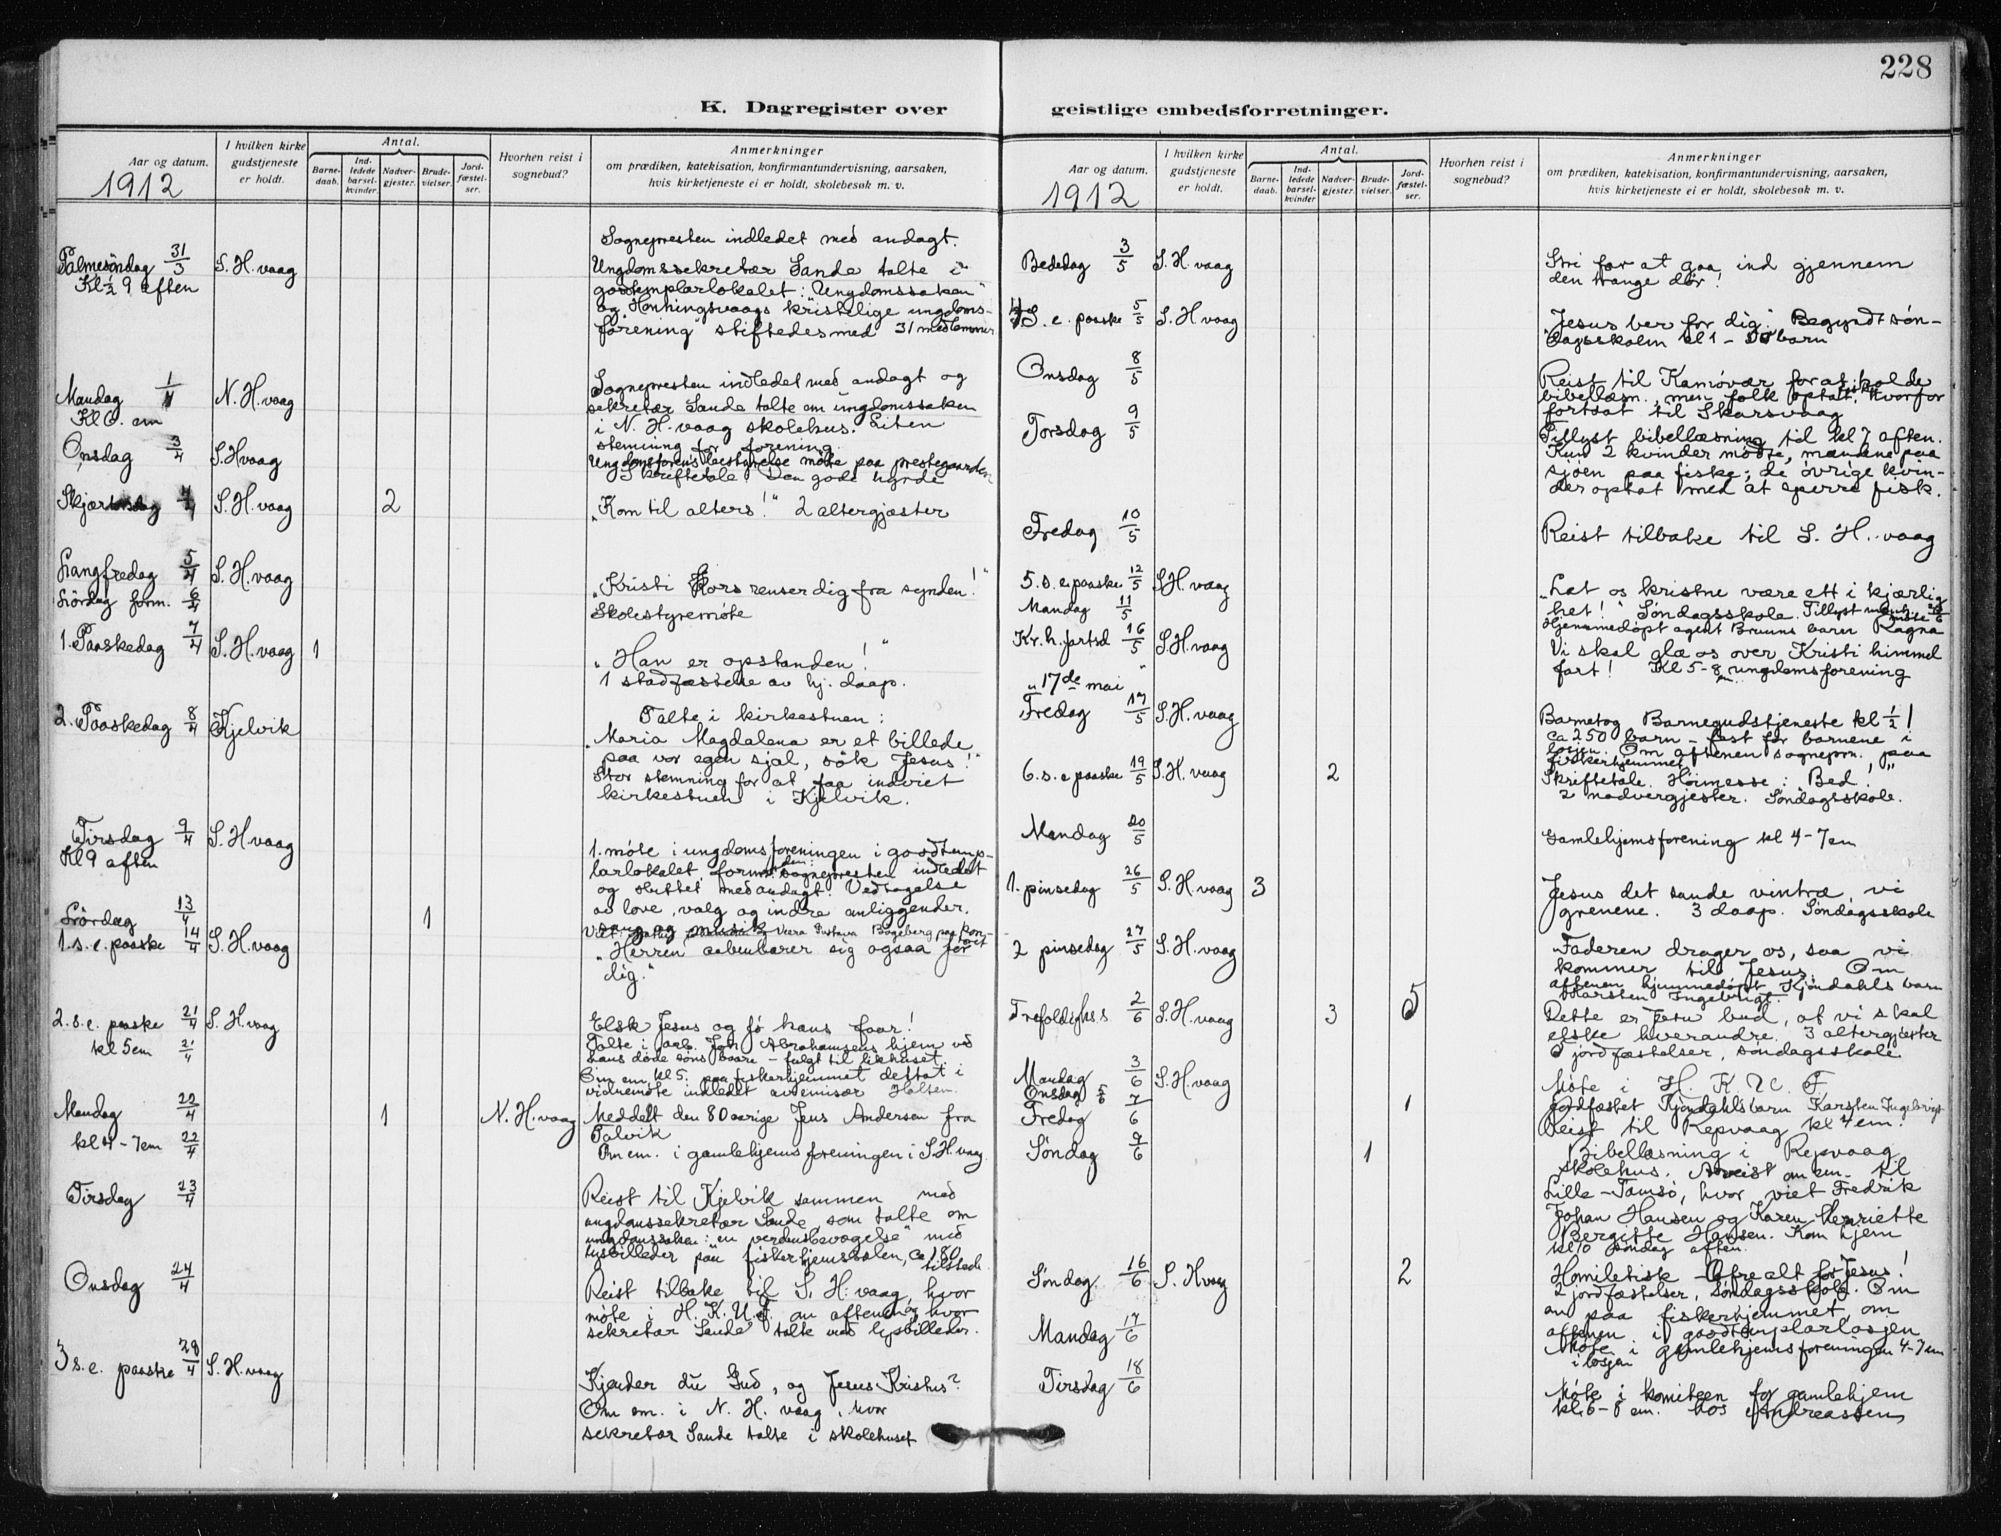 228
K. Dagregister over
Aar og datum.
1912
I hvilken kirke
gudstjeneste
er holdt.
Antal.
Barne-
daab.
Ind-
ledede
barsel-
kvinder.
Nadver-
gjester.
Brude-
vielser.
Jord-
fæstel-
ser.
Hvorhen reist i
sognebud?
Anmerkninger
om prædiken, katekisation, konfirmantundervisning, aarsaken,
hvis kirketjeneste ei er holdt, skolebesøk m. v.
Palmesöndag 31/3 S. H. vaag
Kl ½ 9 aften
Sognepresten indledet med andagt.
Ungdomssekretær Sande talte i
godtemplarlokalet: "Ungdomssaken"
og "Honningsvaags kristelige ungdoms-
forening" stiftedes med 31 medlemmer
Mandag 1/4 N. H. vaag
Kl 6. em
Sognepresten indledet med andagt og
sekretær Sande talte om ungdomssaken
i N. H. vaag skolehus. Liten
stemning for forening.
Onsdag 3/4 S. H vaag
Ungdomsforen's bestyrelse møte paa prestegaarden
Skjærtorsdag 4/4 S. H. vaag 2
Skriftetale: Den gode hyrde
"Kom til alters!" 2 altergjæster
Langfredag 5/4 S. H. vaag
"Kristi Kors renser dig fra synden!"
Lördag form. 6/4
Skolestyremöte
1. Paaskedag 7/4 S. H. vaag 1
"Han er opstanden!"
1 stadfæstelse av hj. daap.
2. Paaskedag 8/4 Kjelvik
Talte i kirkestuen:
"Maria Magdalena er et billede
paa vor egen sjæl, sök Jesus!"
Stor stemning for at faa indviet
kirkestuen i Kjelvik.
Tirsdag 9/4 S. H. vaag
Kl 9 aften
1. möte i ungdomsforeningen i goodtemp-
larlokalet, sognepresten indledet
og sluttet med andagt. Vedtagelse
av love, valg og indre anliggender.
sang og musik
Lördag 13/4 1
Viet: Vera Gustava Bogeberg paa kon-
toret
1. s. e. paaske 14/4 S. H. vaag
"Herren aabenbarer sig ogsaa for
dig."
2. s. e. paaske 21/4 S. H. vaag
Elsk Jesus og fö hans faar!
kl 5 em 21/4
Talte i arb. Joh. Abrahamsens hjem ved
hans döde söns baare – fulgt til likhuset.
Om em kl 5. paa fiskerhjemmet deltat i
vidnemöte indledet av emisær Holten.
Mandag 22/4 1 N. H. vaag
Meddelt den 80 aarige Jens Andersen fra
Talvik
kl 4 – 7 em 22/4
Om em. i gamlehjemsforeningen i S. H. vaag.
Tirsdag 23/4
Reist til Kjelvik sammen med
ungdomssekretær Sande, som talte om
ungdomssaken: "en verdensbevægelse" med
lysbilleder paa fiskerhjemssalen, ca 180
tilstede.
Onsdag 24/4
Reist tilbake til S. H. vaag, hvor
möte i H. K. U. F. om aftenen og hvor
sekretær Sande talte med lysbilleder.
3 s. e. paaske 28/4 S. H. vaag
Kjender du Gud, og Jesus Kristus?
Om em. i N. H. vaag, hvor
sekretær Sande talte i skolehuset
geistlige embedsforretninger.
Aar og datum.
1912
I hvilken kirke
gudstjeneste
er holdt.
Antal.
Barne-
daab.
Ind-
ledede
barsel-
kvinder
Nadver-
gjester.
Brude-
vielser.
Jord-
fæstel-
ser.
Hvorhen reist i
sognebud?
Anmerkninger
om prædiken, katekisation, konfirmantundervisning, aarsaken,
hvis kirketjeneste ei er holdt, skolebesøk m. v.
Bededag 3/5 S. H. vaag
Stri for at gaa ind gjennem
den trange dör!
4 S. e. paaske 5/5 S. H. vaag
"Jesus ber for dig." Begyndt søn-
dagsskolen kl 1 – barn
Onsdag 8/5
Reist til Kamövær for at holde
bibellæsn., men folk optat, hvorfor
fortsat til Skarsvaag
Torsdag 9/5
Tillyst bibellæsning til kl 7 aften.
Kun 2 kvinder mödte, mændene paa
sjöen paa fiske; de övrige kvin-
der optat med at sperre fisk.
Fredag 10/5
Reist tilbake til S. H. vaag
5. s. e. paaske 12/5 S. H. vaag
"Lat os kristne være ett i kjærlig-
het!" Söndagsskole. Tillyst
Mandag 11/5
Hjemmedöpt agent Bruuns barn Ragna
Kr. h. fartsd 16/5 S. H. vaag
Vi skal glæ os over Kristi himmel
fart! Kl 5-8 ungdomsforening
"17de mai"
Fredag 17/5 S. H. vaag
Barnetog Barnegudstjeneste kl ½ 1
ca 250 barn – fest for barnene i
losjen. Om aftenen sogneprn. paa
fiskerhjemmet
6. s. e paaske 19/5 S. H. vaag 2
Skriftetale. Höimesse: "Bed!"
2 nadvergjester. Söndagsskole.
Mandag 20/5
Gamlehjemsforening kl 4–7 em
1. pinsedag 26/5 S. H. vaag 3
Jesus det sande vintræ, vi
grenene. 3 daap. Söndagsskole
2 pinsedag 27/5 S. H. vaag
"Faderen drager os, saa vi
kommer til Jesus. Om
aftenen hjemmedöpt Kjöndahls barn
Karsten Ingebrigt.
Trefoldighs s 2/6 S. H. vaag 3 5
Dette er Jesu bud, at vi skal
elske hverandre. 3 altergjester
5 jordfæstelser, söndagsskole.
Mandag 3/6 S. H. vaag
Möte i H. K. U. F.
Onsdag 5/6 1
Jordfæstet Kjöndahls barn Karsten Ingebrigt
Fredag 7/6
Reist til Repvaag kl 4 em.
Söndag 9/6 1
Bibellæsning i Repvaag
skolehus. Avreist om em. til
Lille–Tamsö, hvor viet Fredrik
Johan Hansen og Karen Henriette
Bergitte Hansen. Kom hjem
kl 10 söndag aften.
Söndag 16/6 S. H vaag 2
Homiletisk – Ofre alt for Jesus!
2 jordfæstelser, söndagsskole. Om
em paa fiskerhjemmet, om
aftenen i goodtemplarlosjen
Mandag 17/6
Möte i gamlehjemsforeningen 4–7 em
i losjen
Tirsdag 18/6
Möte i komiteen for gamlehjem
kl. 6–8 em. hos Andreassen